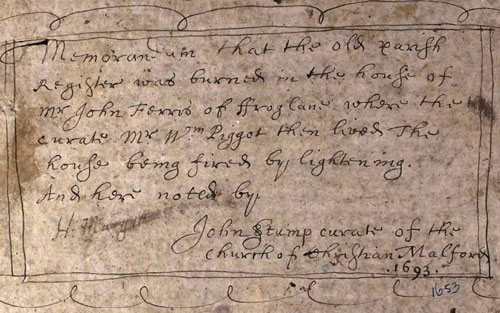 Memorandum that the old parish
Register was burned in the house of
Mr John Ferris of ffroglane where the
curate Mr Wm Piggot then lived The
house being fired by lightening.
And here noted by
H:
John Stump curate of the
Church of Christian Malford
.1693.
1653